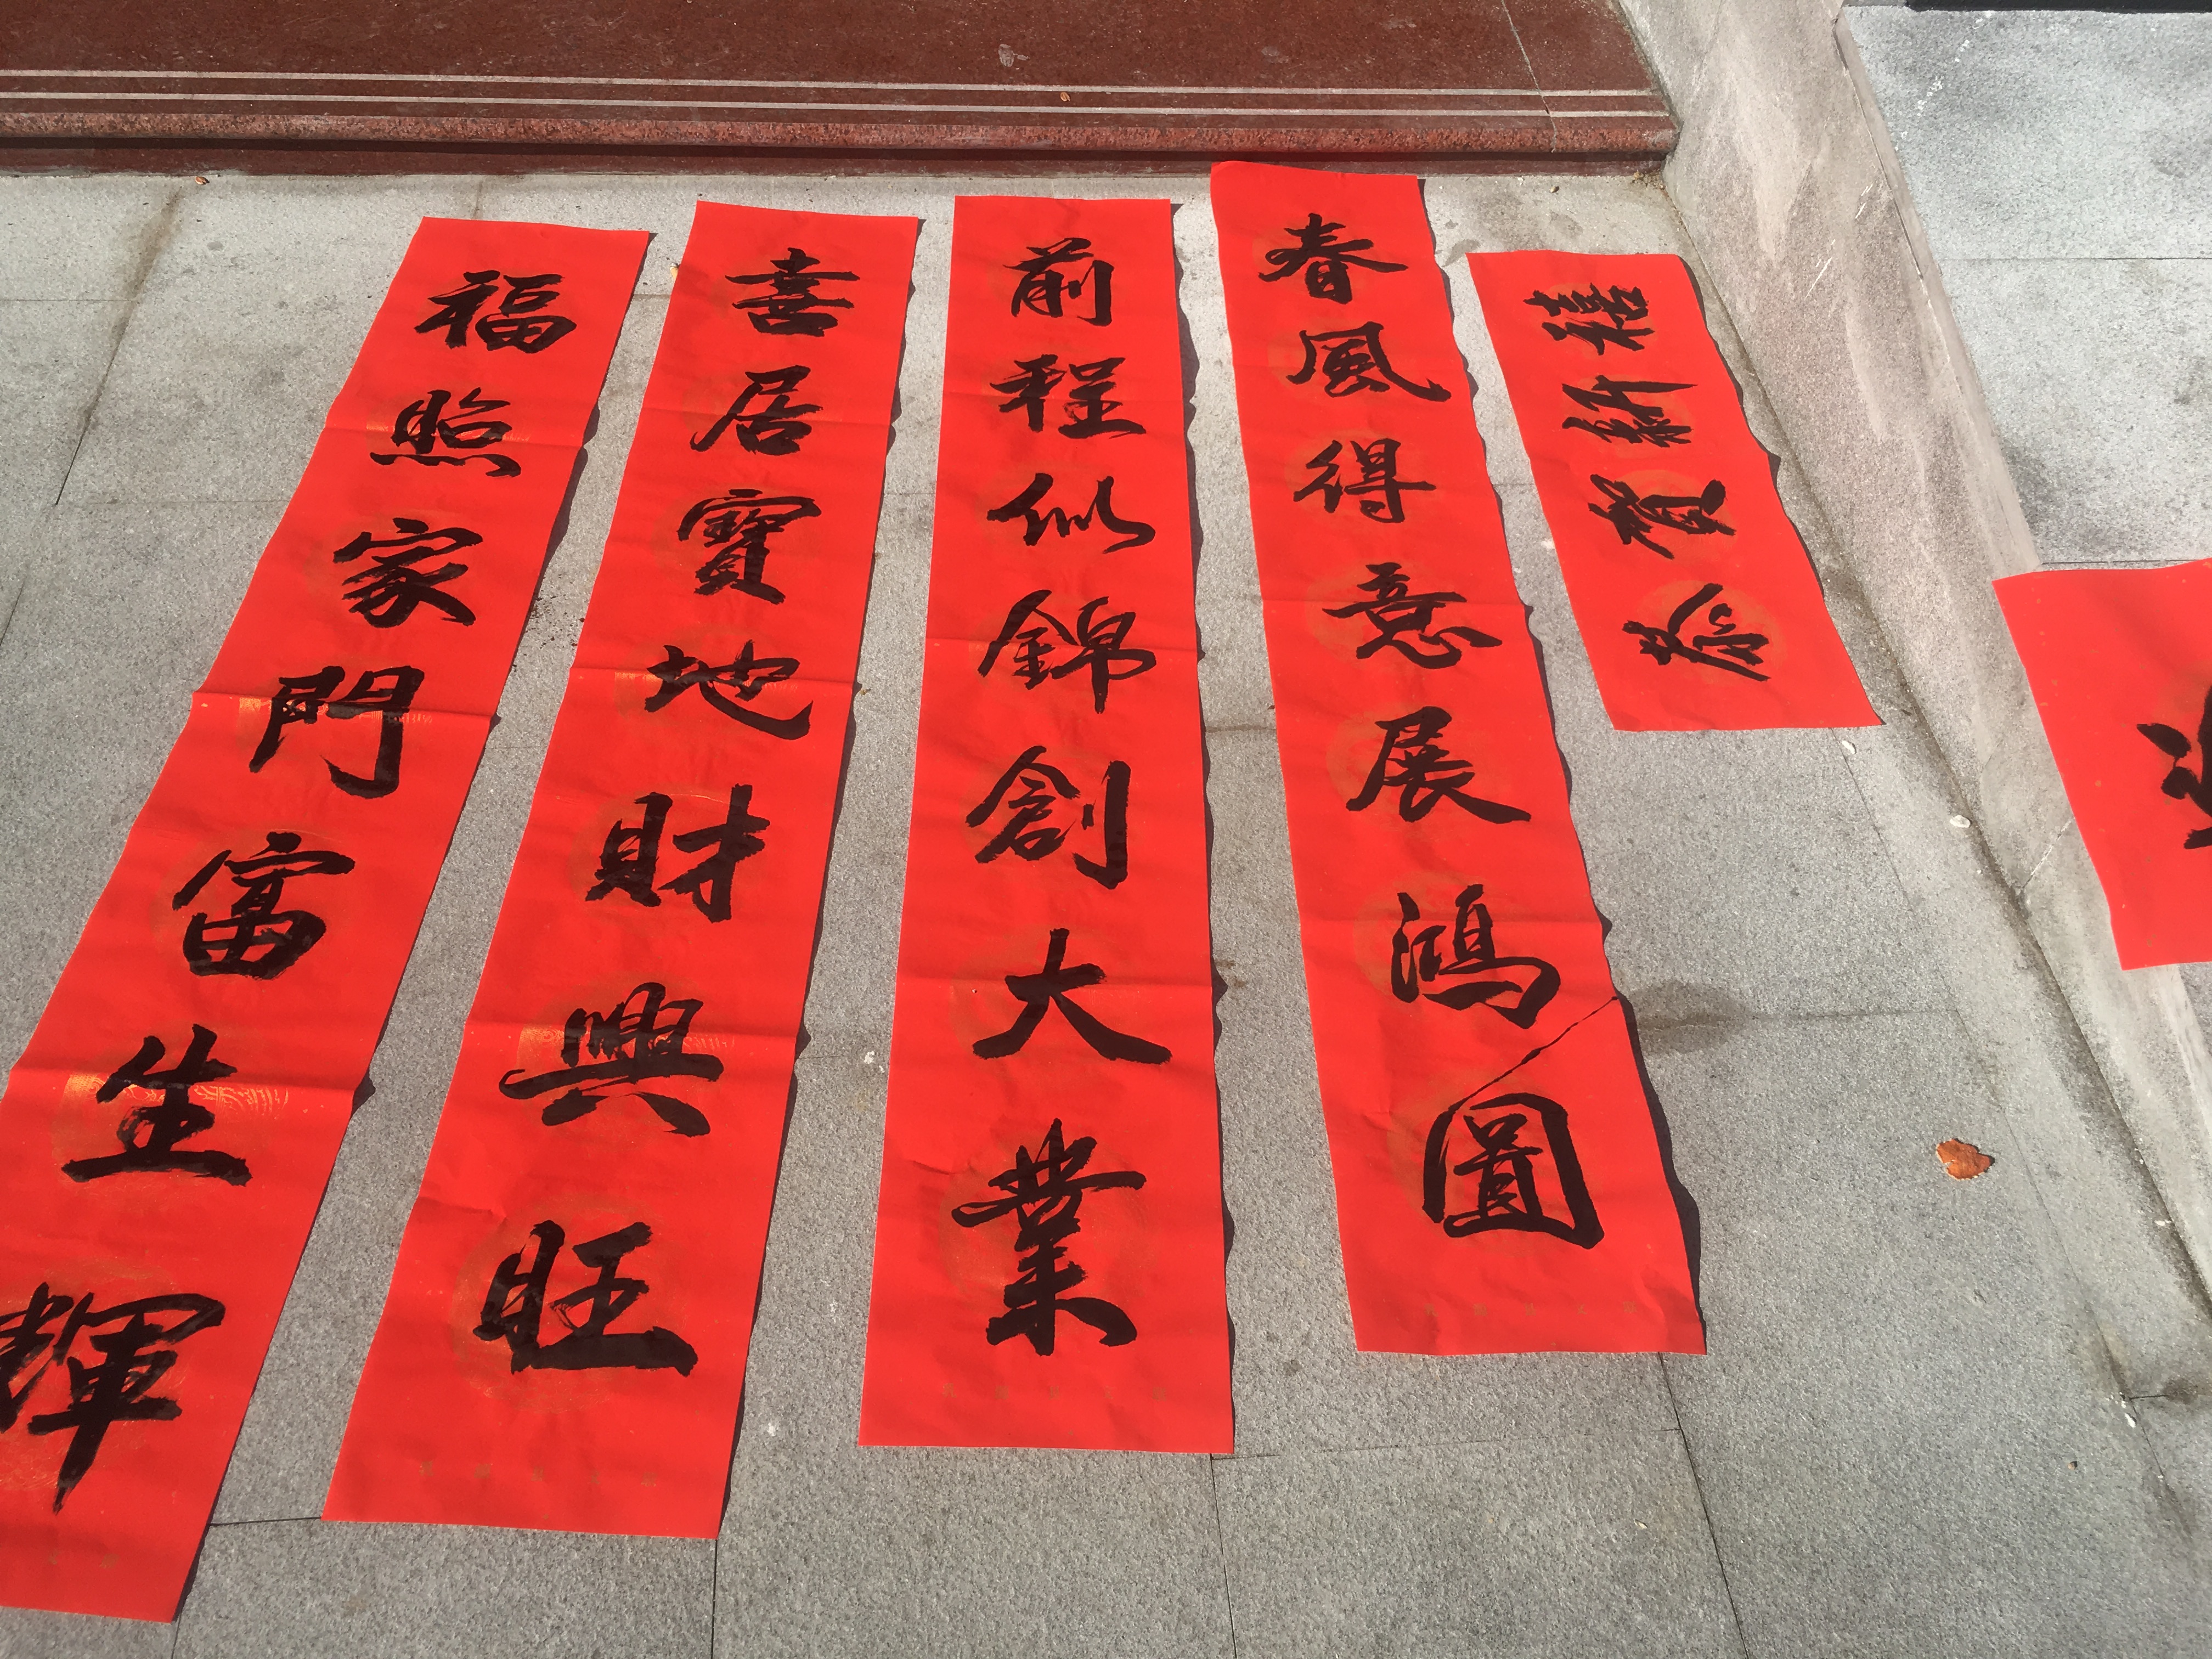 恭賀新禧
春風得意展鴻圖
前程似錦創大業
喜居寶地財興旺
福照家門富生輝